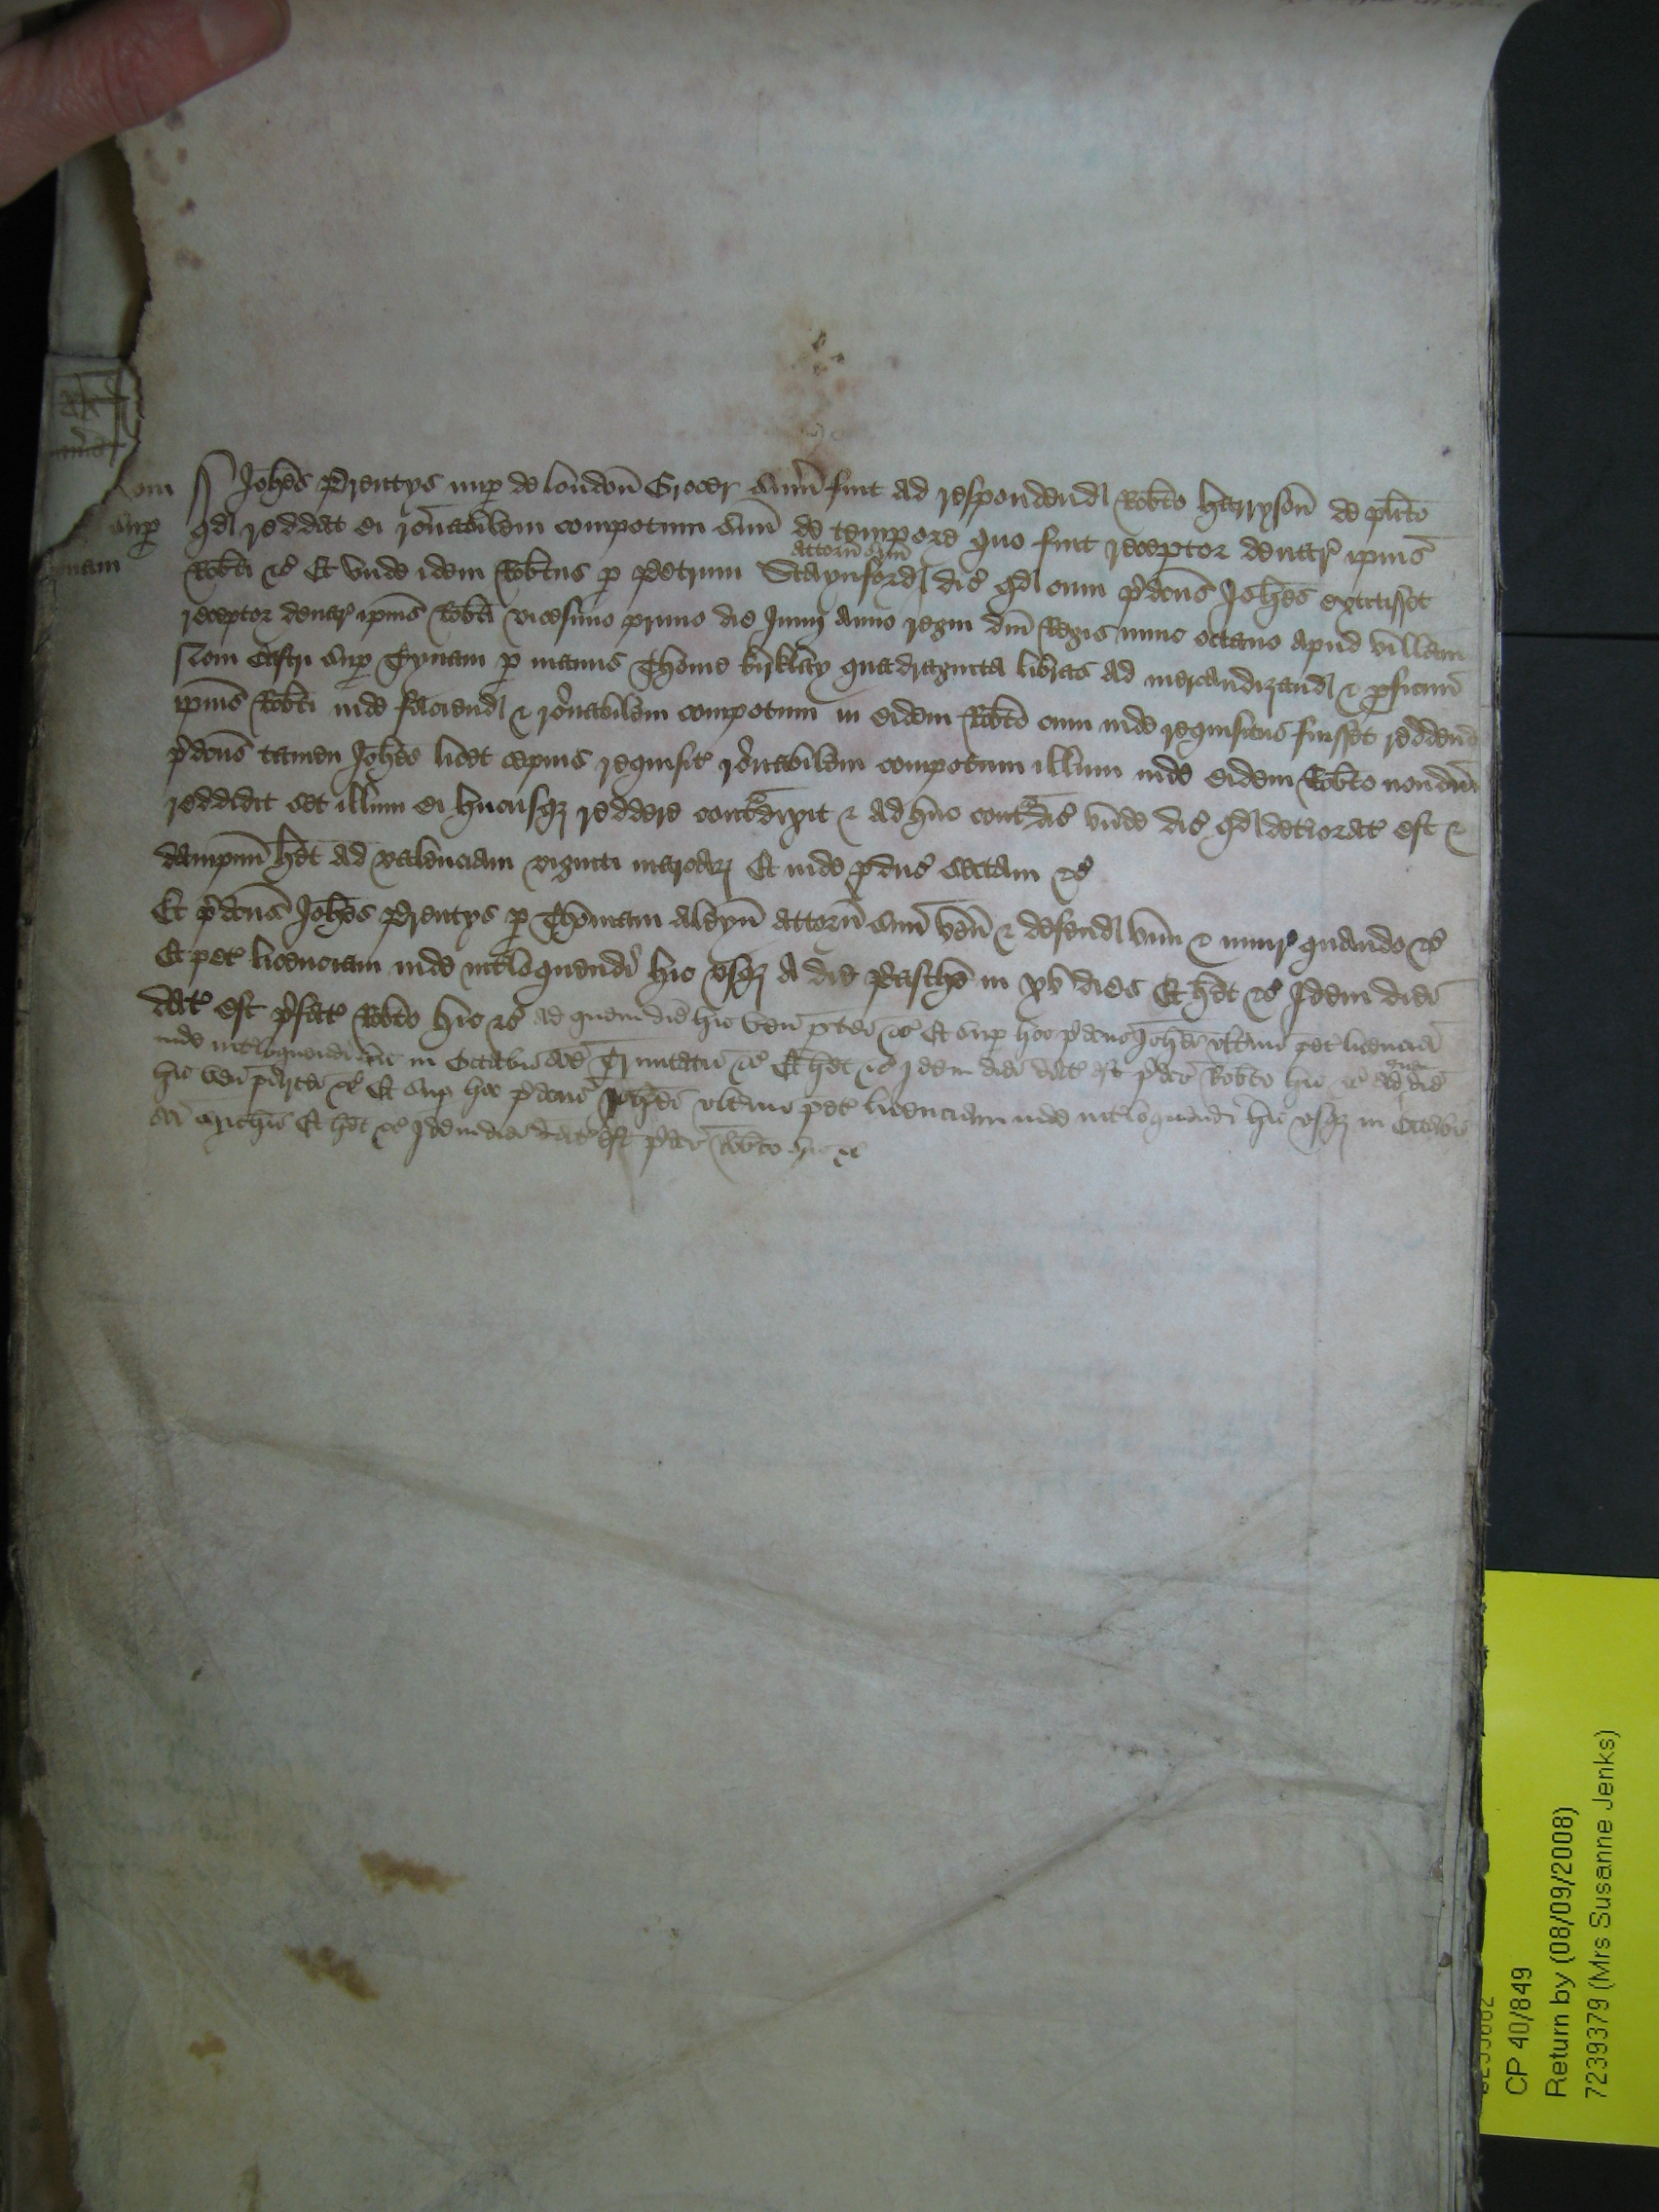 Joħes Prentys nup de london Grocer sum fuit ad respondend Robto harryson de plito
sup qd reddat ei ronabilem compotum suu de tempore quo fuit receptor denar ipius
Robti &c Et unde idem Robtus p Petrum Staynford attorn suu dic qd cum pdcus Joħes extitisset
receptor denar ipius Robti vicesimo primo die Junij Anno regni dni Regis nunc octavo apud villam
Novi Castri sup Tynam p manus Thome kirklay quadraginta libras ad mercandizand & pficuu
ipius Robti inde faciend & ronabilem compotum in eidem Robto cum inde requisitus fuisset reddend
pdcus tamen Joħes licet sepius requisit ronabilem compotum illum inde eidem Robto nondum
reddidit set illum ei hucusq reddere contdixit & adhuc contdic unde dic qd detiorat est &
dampnu het ad valenciam viginti marcar Et inde pduc sectam &c
Et pdcus Joħes Prentys p Thomam Aleyn attorn suu ven & defend vim & iniur quando &c
Et pet licenciam inde intloquendi hic usq a die Pasche in xv dies Et het &c Idem dies
dat est pfat Robto hic &c ad quem diem hic ven ptes &c Et sup hoc pdcus Joħes ultius pet licencia
inde intloquendi hic in Octabis sce Trinitatis &c Et het &c Idem dies dat est pdco Robto hic &c Ad que die
hic ven partes &c Et sup hoc pdcus Joħes ultius pet licenciam inde intloquendi hic usq in Octabis
sci Michis Et het &c Idem dies dat est pdco Robto hic &c
CP 40/849
Return by (08/09/2008)
7239379 (Mrs Susanne Jenks)